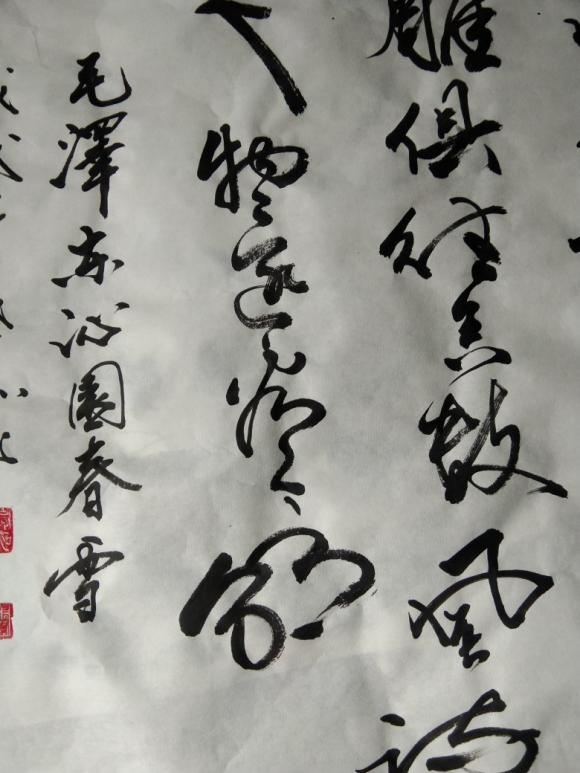 雕俱往矣数風流
人物还看今朝
毛澤东沁園春雪